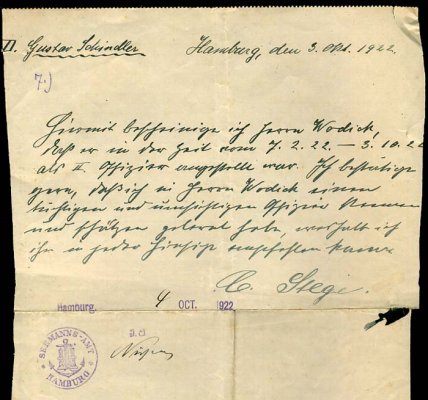 D. Gustav Schindler Hamburg, den 3. Okt. 1922.
7.)
Hiermit bescheinige ich Herrn Wodick,
daß er in der Zeit vom 7.2.22 – 3.10.22
als II Offizier angestellt war. Ich bestätige
gern, daß ich in Herrn Wodick einen
tüchtigen und umsichtigen Offizier kennen
und schätzen gelernt habe, weshalb ich
ihn in jeder Hinsicht empfehlen kann.
C. Stege.
Hamburg. 4 OCT. 1922
SEEMANNS-AMT HAMBURG